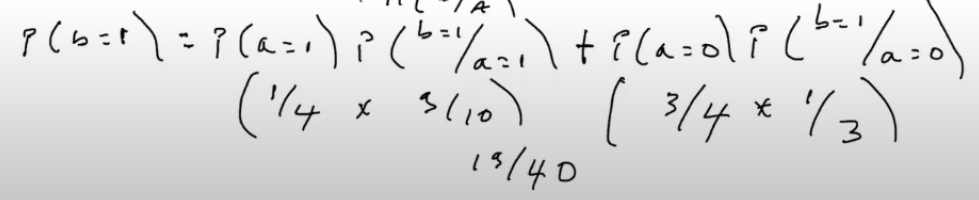 P(b=1) = P(a=1) P(b=1/a=1) + P(a=0) P(b=1/a=0)
(1/4 x 9/10) (3/4 * 1/3)
19/40